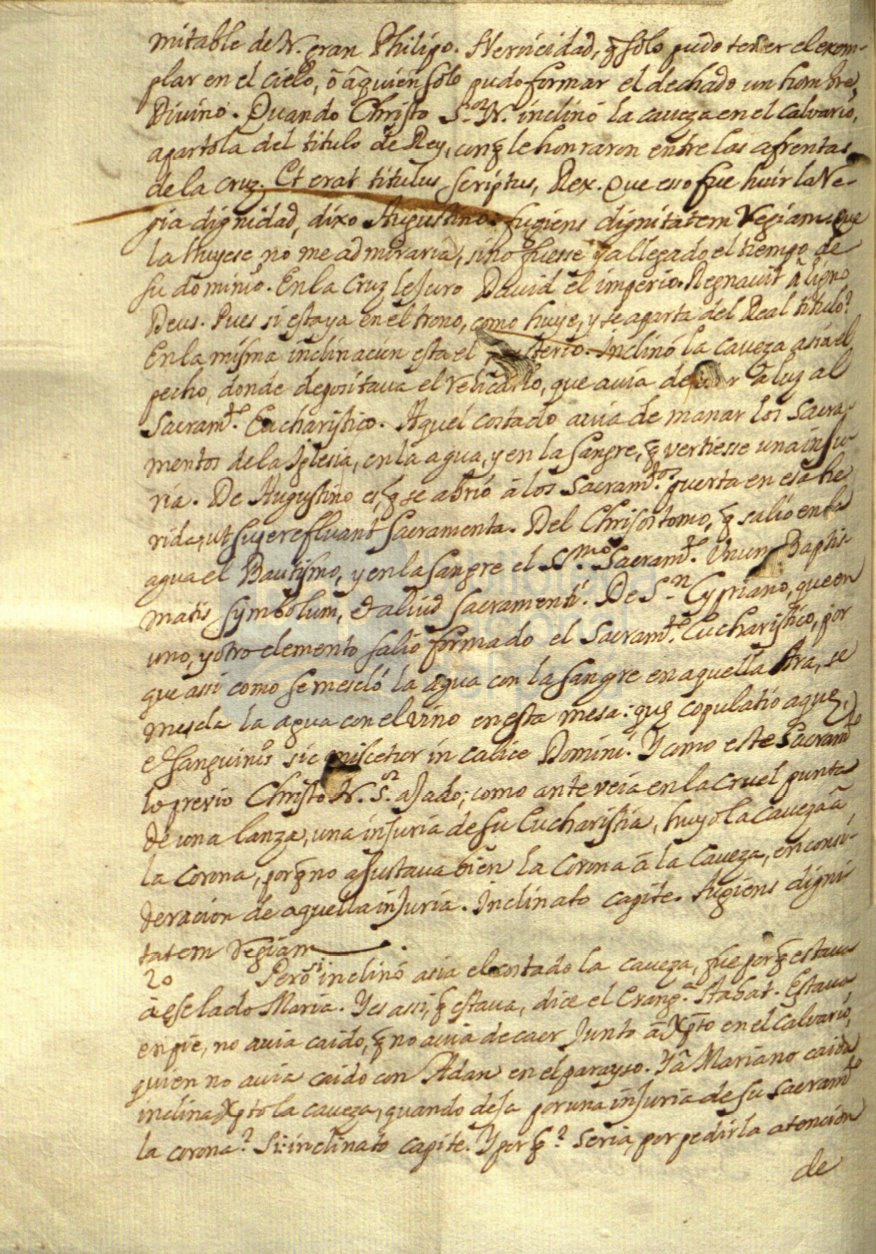 mitable de N. gran Philipo. Heroicidad, q̃ solo pudo tener el exem-
plar en el cielo, ô â quien solo pudo formar el dechado un hombre
Divino. Quando Christo S.ᵒʳ N. inclinó la caveza en el calvario,
apartola del titulo de Rey, con q̃ le honraron entre las afrentas
de la cruz. Et erat titulus scriptus, Rex. Que eso fue huir la Re-
gia dignidad, dixo Augustino: fugiens dignitatem Regiam: que
la huyese no me admiraria, si no fuesse ya llegado el tiempo de
su dominio. En la Cruz le juro David el imperio. Regnavit â ligno
Deus. Pues si esta ya en el trono, como huye, y se aparta del Real titulo?
En la misma inclinacion esta el misterio. Inclinó la caveza asia el
pecho, donde depositava el relicario, que avia de dar â luz al
Sacram.ᵗᵒ Eucharistico. Aquel costado avia de manar los Sacra-
mentos de la Iglesia, en la agua, y en la sangre, q̃ vertiesse una inju-
ria. De Augustino es, q̃ se abrió â los Sacram.ᵗᵒˢ puerta en esa he
rida, ut superefluant Sacramenta. Del Chrisostomo, q̃ salió en la
agua el Bautismo, y en la sangre el SS.ᵐᵒ Sacram.ᵗᵒ Unum Baptis-
matis symbolum, & aliud Sacramenti. De S.ⁿ Cypriano, que en
uno, y otro elemento salio formado el Sacram.ᵗᵒ Eucharistico, por
que assi como se mescló la agua con la sangre en aquella Ara, se
mescla la agua con el vino en esta mesa: quę copulatio aquę,
et sanguinis sic miscetur in calice Domini. Y como este Sacram.ᵗᵒ
lo previo Christo N. S.ᵒʳ ajado; como ante veia en la cruel punta
de una lanza, una injuria de su Eucharistia, huyó la caveza â
la corona, por q̃ no ajustava bien la corona â la caveza, en consi-
deracion de aquella injuria. Inclinato capite. fugiens digni-
tatem Regiam.
20 Pero si inclinó asia el costado la caveza, fue por q̃ estava
â ese lado Maria. Y es assi, q̃ estava, dice el Evang.ᵃ Stabat. Estava
en pie, no avia caido, q̃ no avia de caer junto â Xp̃to en el calvario,
quien no avia caido con Adan en el parayso. Y â Maria no caida
inclina Xp̃to la caveza, quando deja por una injuria de su Sacram.ᵗᵒ
la corona? Si: inclinato capite. Y por q̃? Seria, por pedirla atencion
de